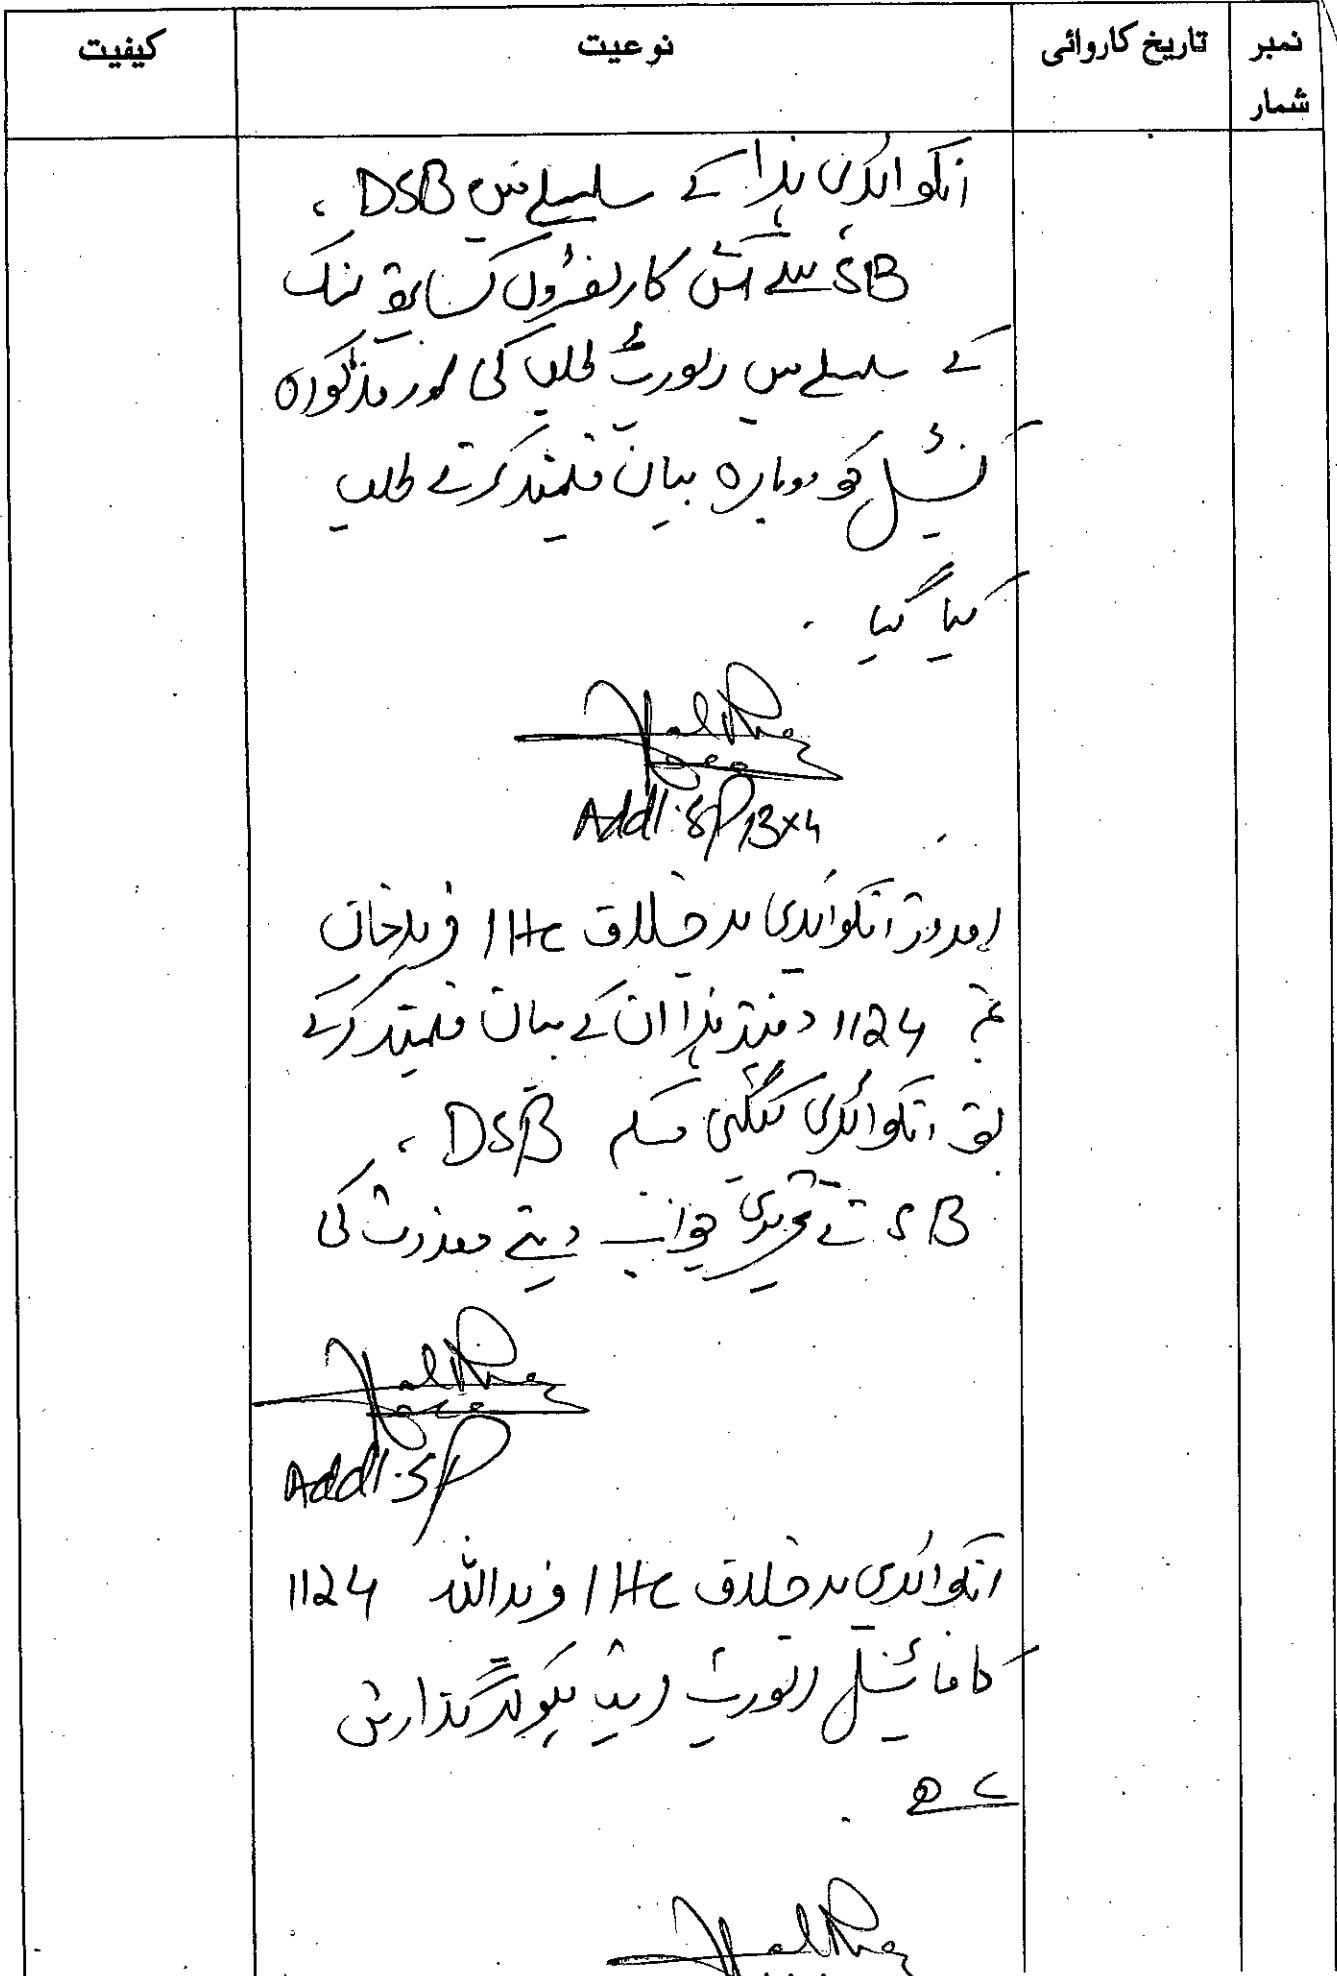 نمبر شمار
تاریخ کاروائی
نوعیت
کیفیت
انکوائری ہذا کے سلسلے میں DSB ،
SB سے اس کا
کے سلسلے میں رپورٹ طلب کی اور مذکورہ
کنسٹیبل کو دوبارہ بیان قلمبند کرنے طلب
کیا گیا ۔
Addl: SP
امروز انکوائری برخلاف IHC فرید خان
نمبر 1124 دفتر ہذا ان کے بیان قلمبند کرکے
انکوائری کی گئی DSB ،
SB نے تحریری جواب دیتے معذرت کی
Addl: SP
انکوائری برخلاف IHC فرید اللہ 1124
کا فائنل رپورٹ گذارش
ہے ۔